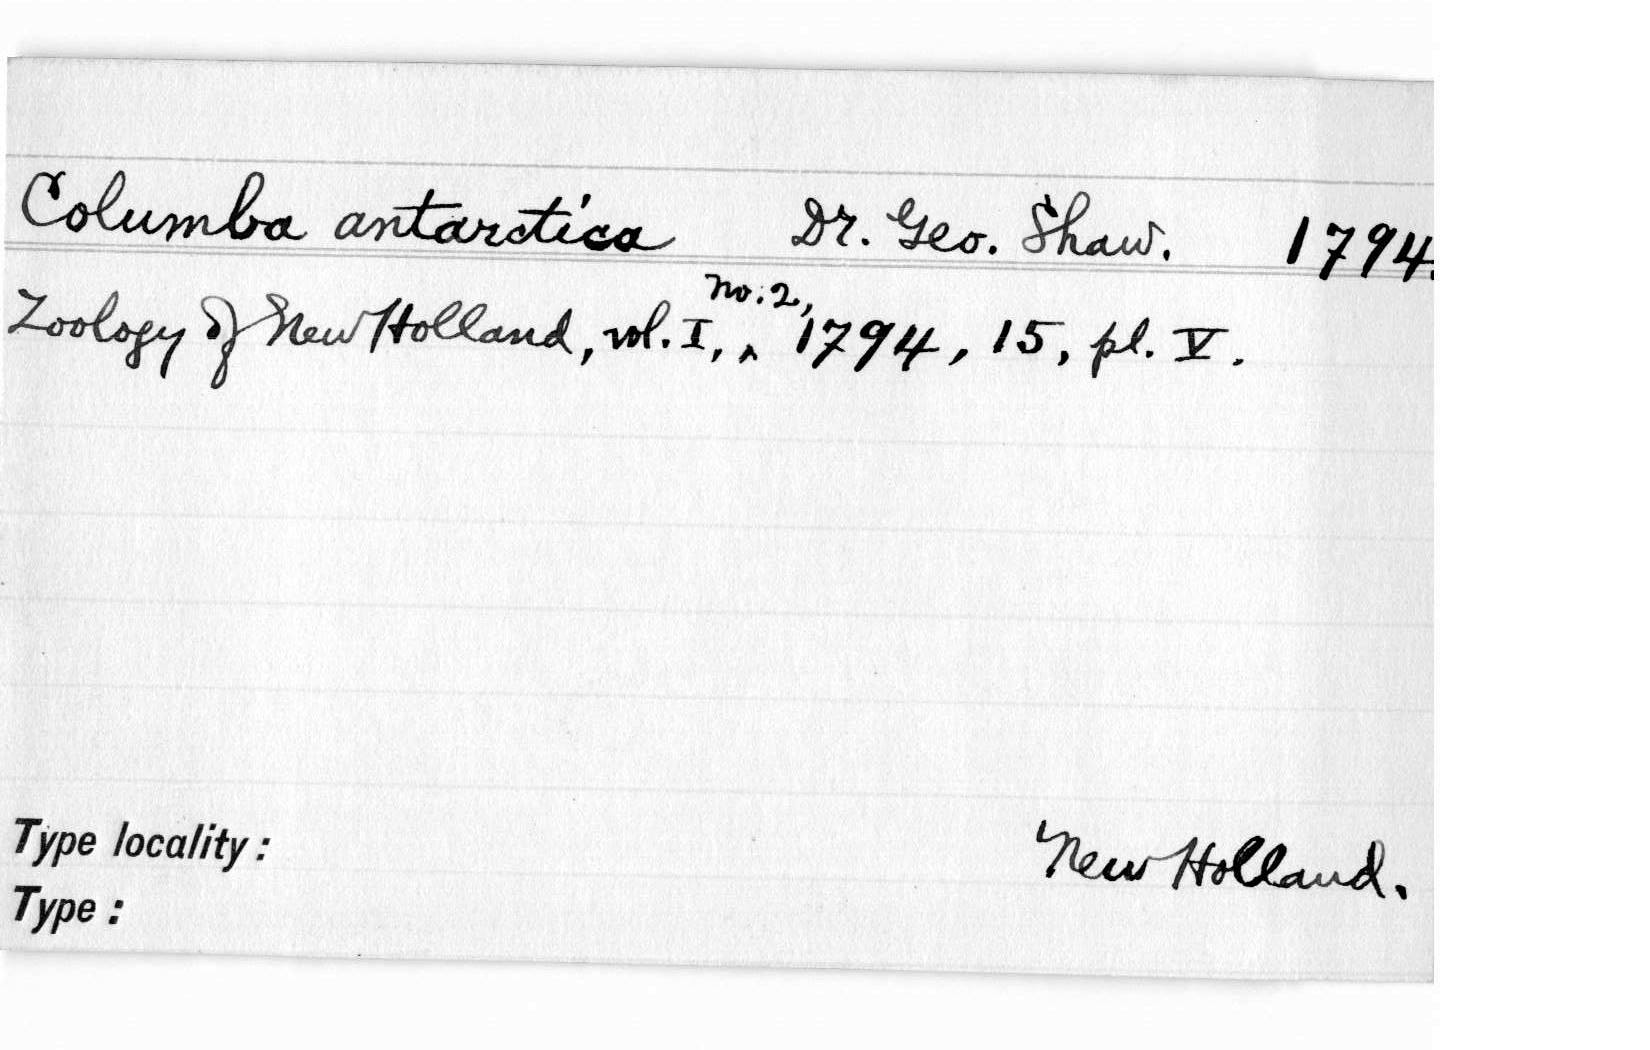 Columba antarctica Dr. Geo. Shaw. 1794.
Zoology of New Holland, vol. I, no. 2, 1794, 15, pl. V.
Type locality: New Holland.
Type: